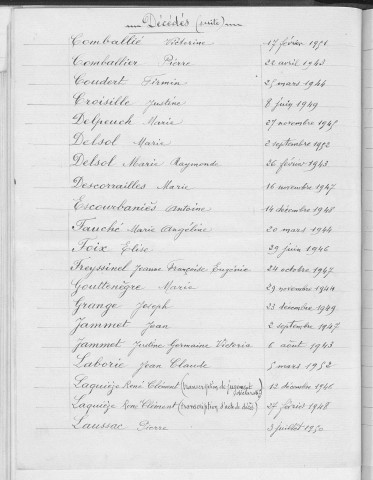 Décédés (suite)
Comballié Victorine 17 février 1951
Comballier Pierre 22 avril 1943
Coudert Firmin 25 mars 1944
Croisille Justine 8 juin 1949
Delpeuch Marie 27 novembre 1945
Delsol Marie 2 septembre 1952
Delsol Marie Raymonde 26 février 1943
Descorrailles Marie 16 novembre 1947
Escourbaniès Antoine 14 décembre 1948
Fauché Marie Angéline 20 mars 1944
Foix Elise 29 juin 1946
Freyssinel Jeanne Françoise Eugénie 24 octobre 1947
Gouttenègre Marie 29 novembre 1944
Grange Joseph 23 décembre 1949
Jammet Jean 2 septembre 1947
Jammet Justine Germaine Victoria 6 août 1943
Laborie Jean Claude 5 mars 1952
Laquièze René Clément (transcription de jugement 12 décembre 1946
Laquièze René Clément (transcription d'acte de décès) 27 février 1948
Laussac Pierre 3 juillet 1950